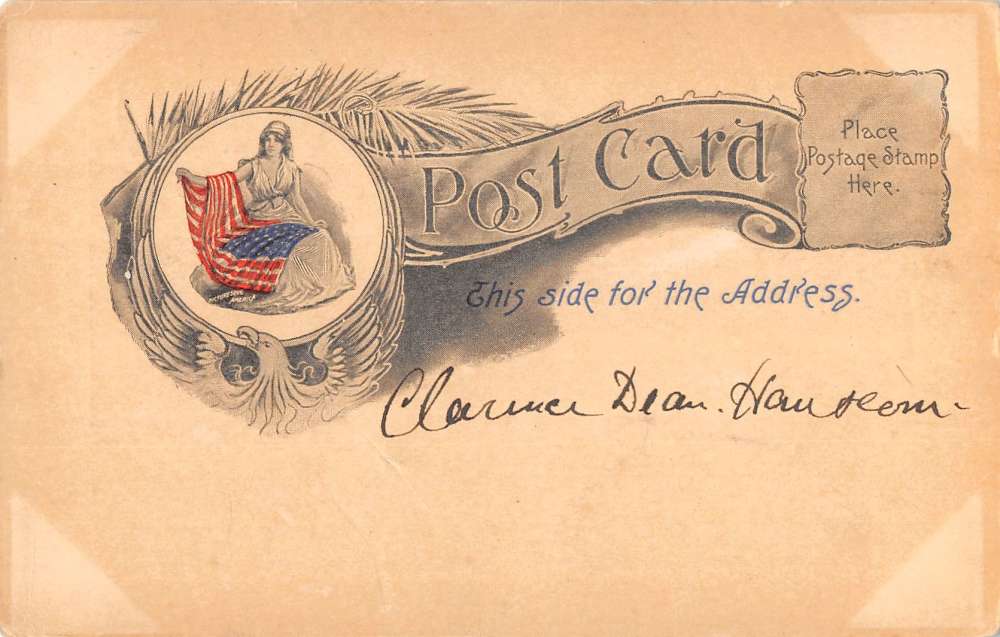 Post Card
Place
Postage Stamp
Here.
PICTURESQUE
AMERICA
This side for the Address.
Clarence Dean. Hanscom-